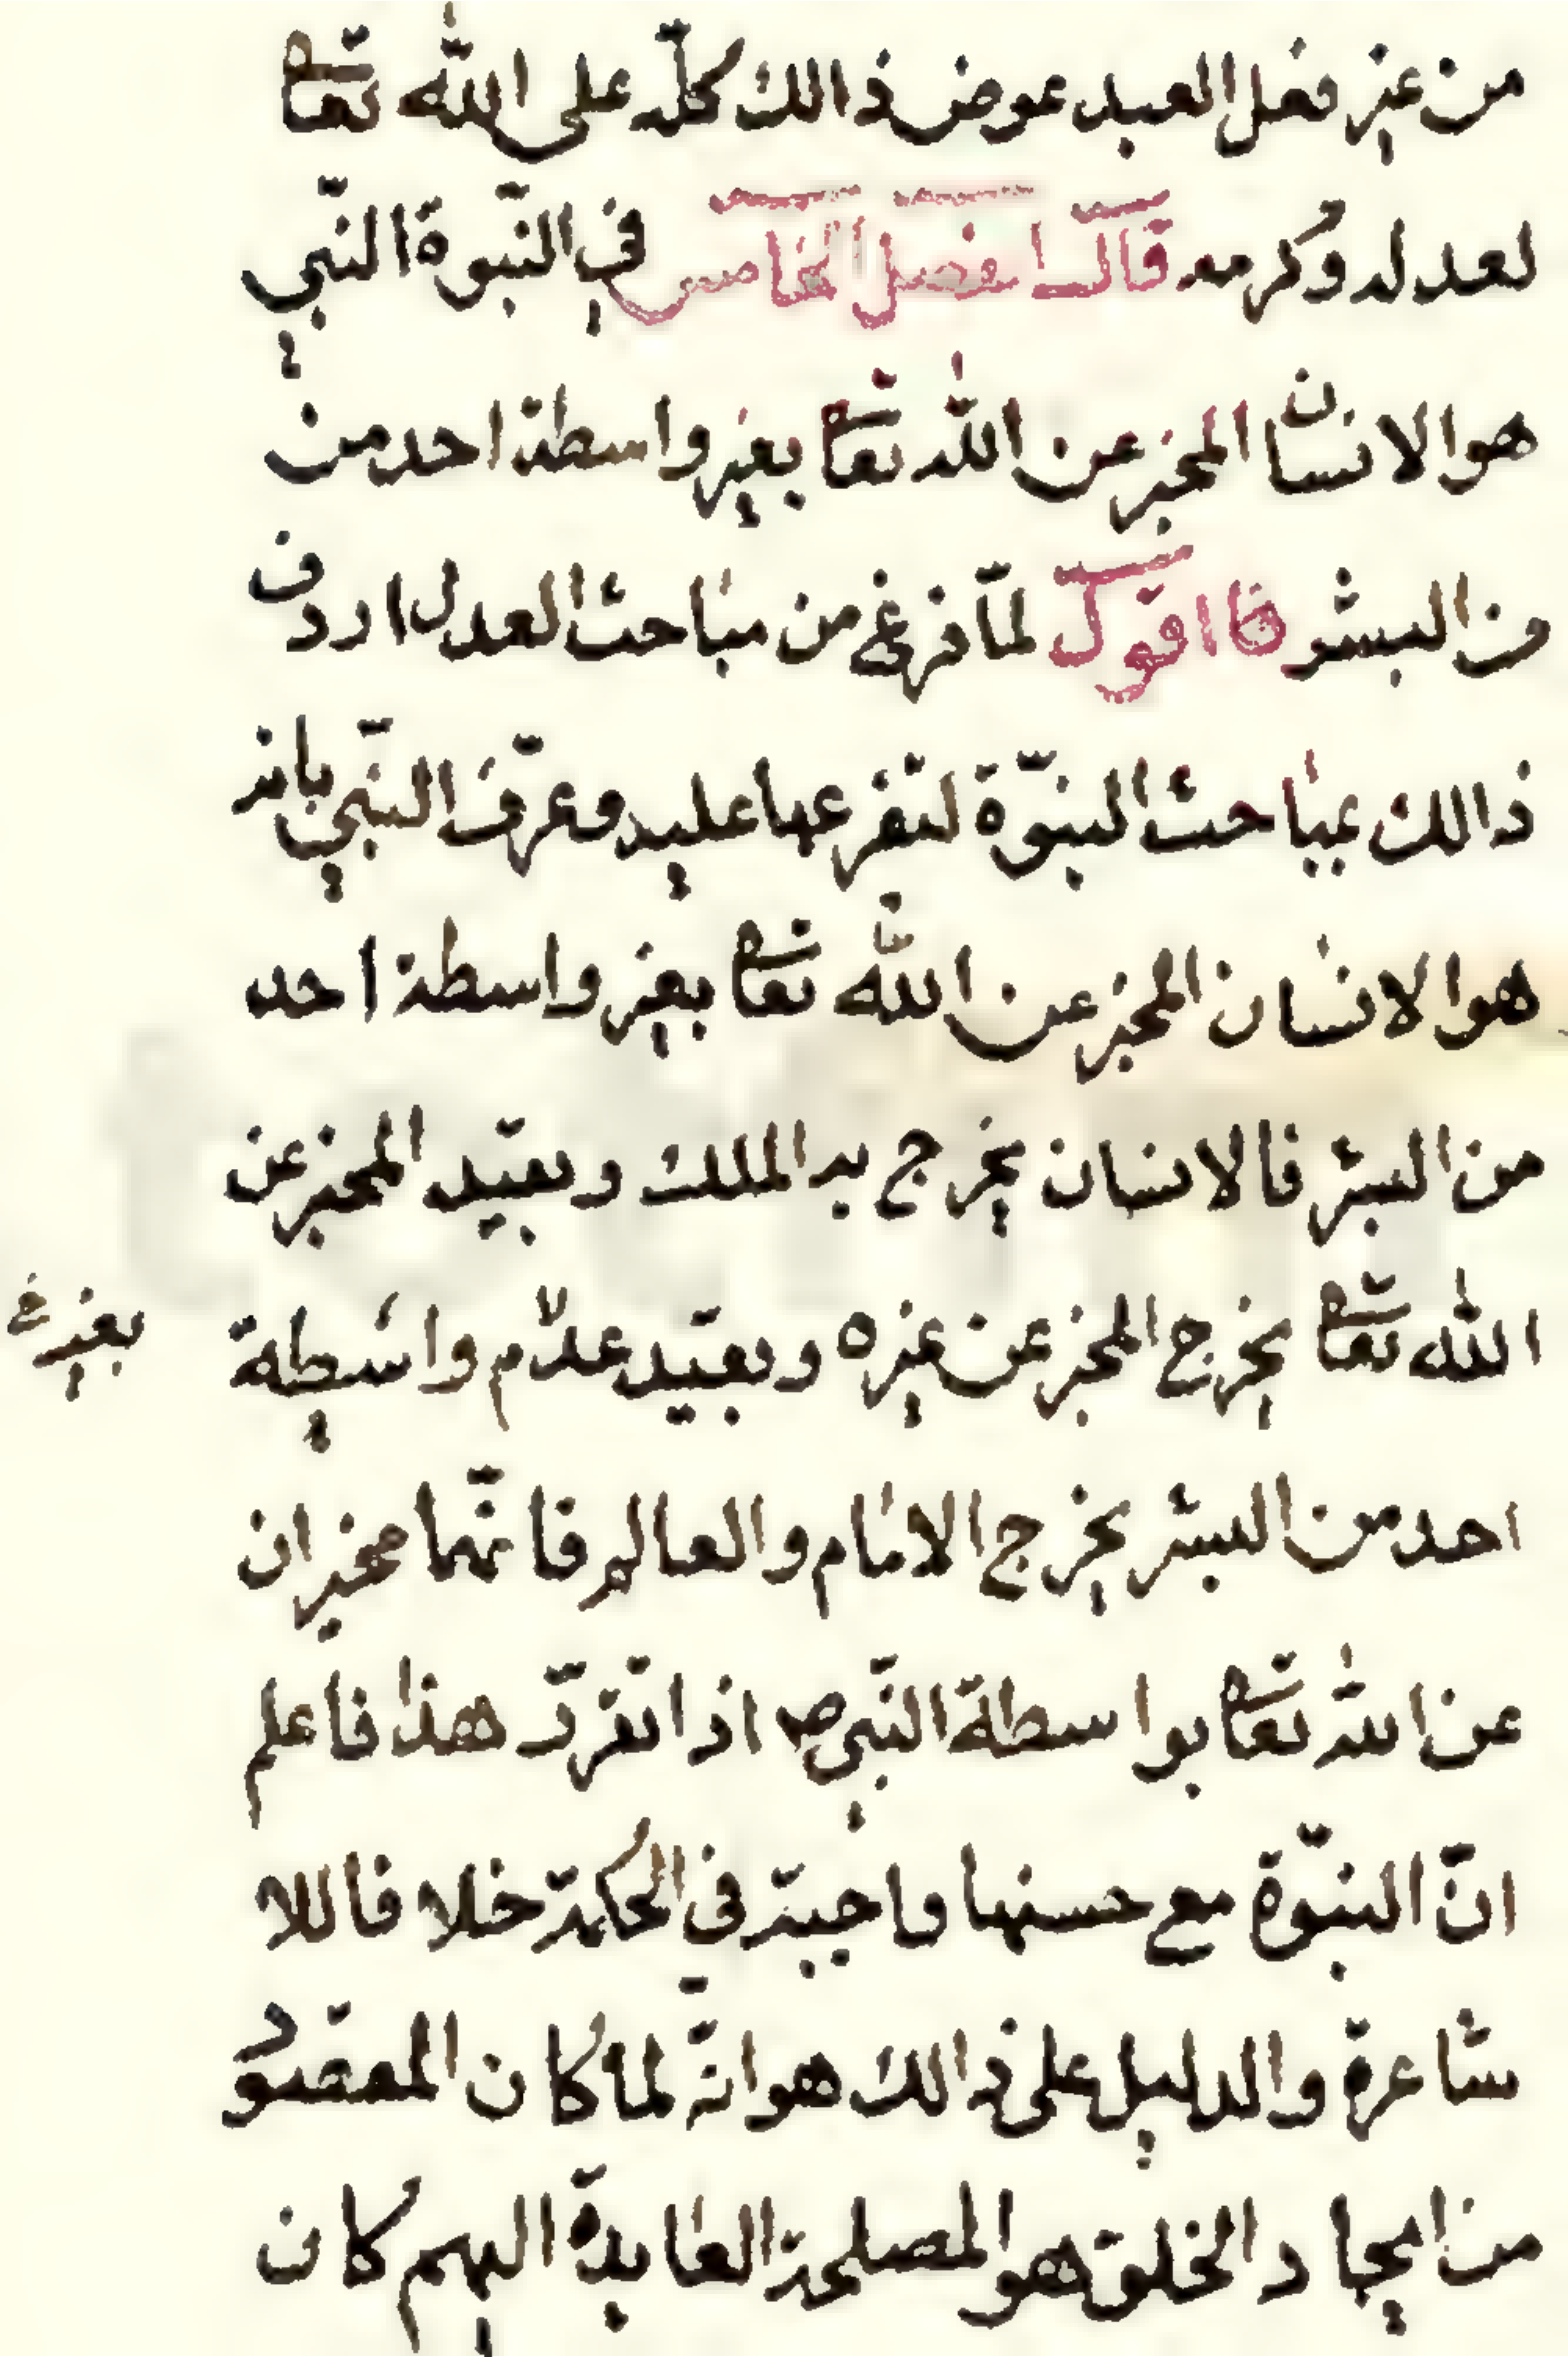 من غير فعل العبد عوض ذالك كلّه على الله تعا
لعدله وكرمه قال الفصل الخامس في النّبوة النّبي
هو الانسان المخبر عن الله تعا بغير واسطة احد من
من البشر اقول لمّا فرغ من مباحث العدل اردف
ذالك بمباحث النبوّة لتفرعها عليه وعرّف النّبي بانه
هو الانسان المخبر عن الله تعا بغير واسطة احد
من البشر فالانسان يخرج به الملك وبقيّد المخبر عن
الله تعا يخرج المخبر عن غيره وبقيّد عدم واسطة بغير
احد من البشر يخرج الامام والعالم فانّهما مخبران
عن الله تعا بواسطة النّبي ص اذا تقرّر هذا فاعلم
انّ النبوّة مع حسنها واجبة في الحكمة خلافا للا
شاعرة والدليل على ذالك هو انّه لما كان المقصود
من ايجاد الخلق هو المصلحة العايدة اليهم كان